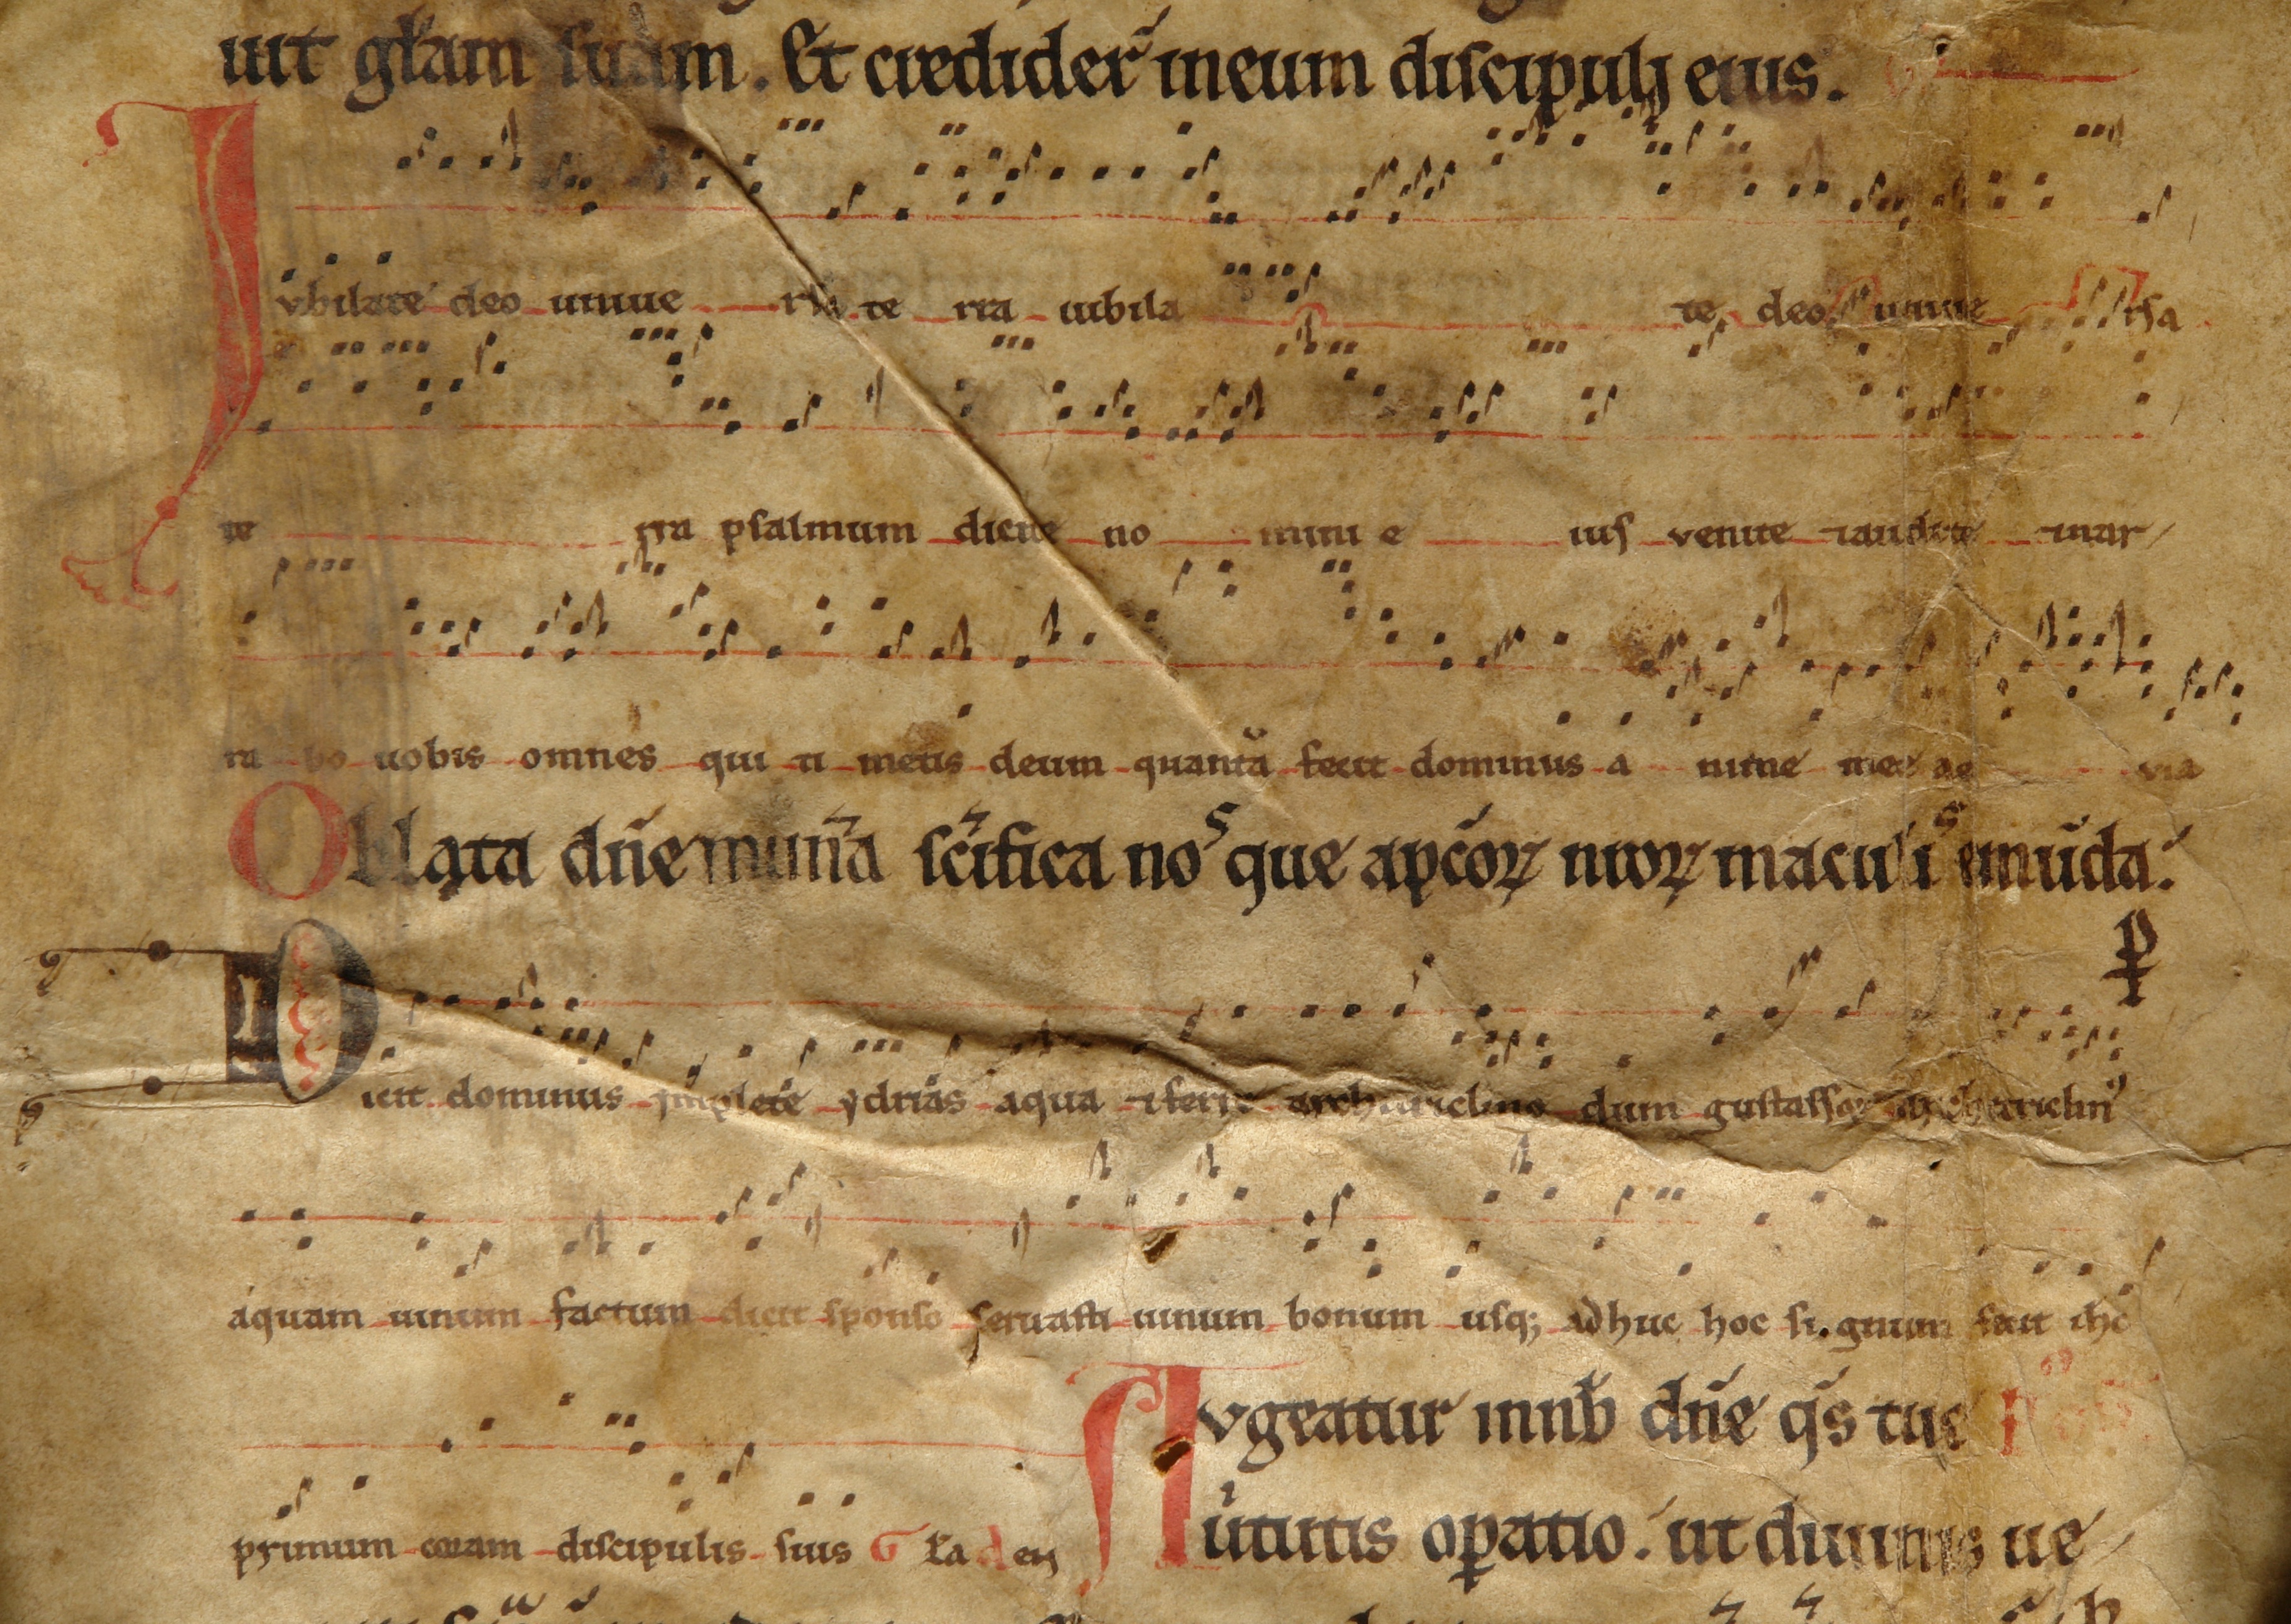 uit gl̄am suam. Et crediderˉ in eum discipulj eius.
Jvbilate deo uniue rsa te rra iubila te deo uniue rsa
te rra psalmum dicite no mini e ius venite ⁊audite ⁊nar
ra bo uobis omnes qui ti metis deum quanta fecit dominus a nime mee ae via
Oblata dn̄e mun̄a sc̄ifica nos que ap̄cōꝝ nr̄oꝝ maculis emūda.
Dicit dominus ymplete ydrias aqua ⁊ferte architriclino dum gustasset architriclinꝰ
aquam uinum factum dicit sponso seruasti uinum bonum usqꝫ adhuc hoc si.gnum fecit ih̄c
primum coram discipulis suis G l̄a d eij
Avgeatur in nob̄ dn̄e qs̄ tue
uirtutis oꝑatio. ut diuinis ue